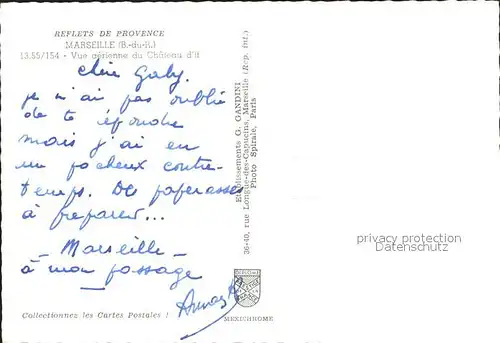 REFLETS DE PROVENCE
MARSEILLE (B.-du-R.)
13.55/154 - Vue aérienne du Château d'If
Chère Gaby.
je n'ai pas oublié
de te répondre
mais j'ai eu
un fâcheux contre-
temps. Des paperasses
à préparer...
- Marseille -
à mon passage
Collectionnez les Cartes Postales !
MEXICHROME
Etablissements G. GANDINI
36-40, rue Longue-des-Capucins, Marseille (Rep. int.)
Photo Spirale, Paris
privacy protection
Datenschutz